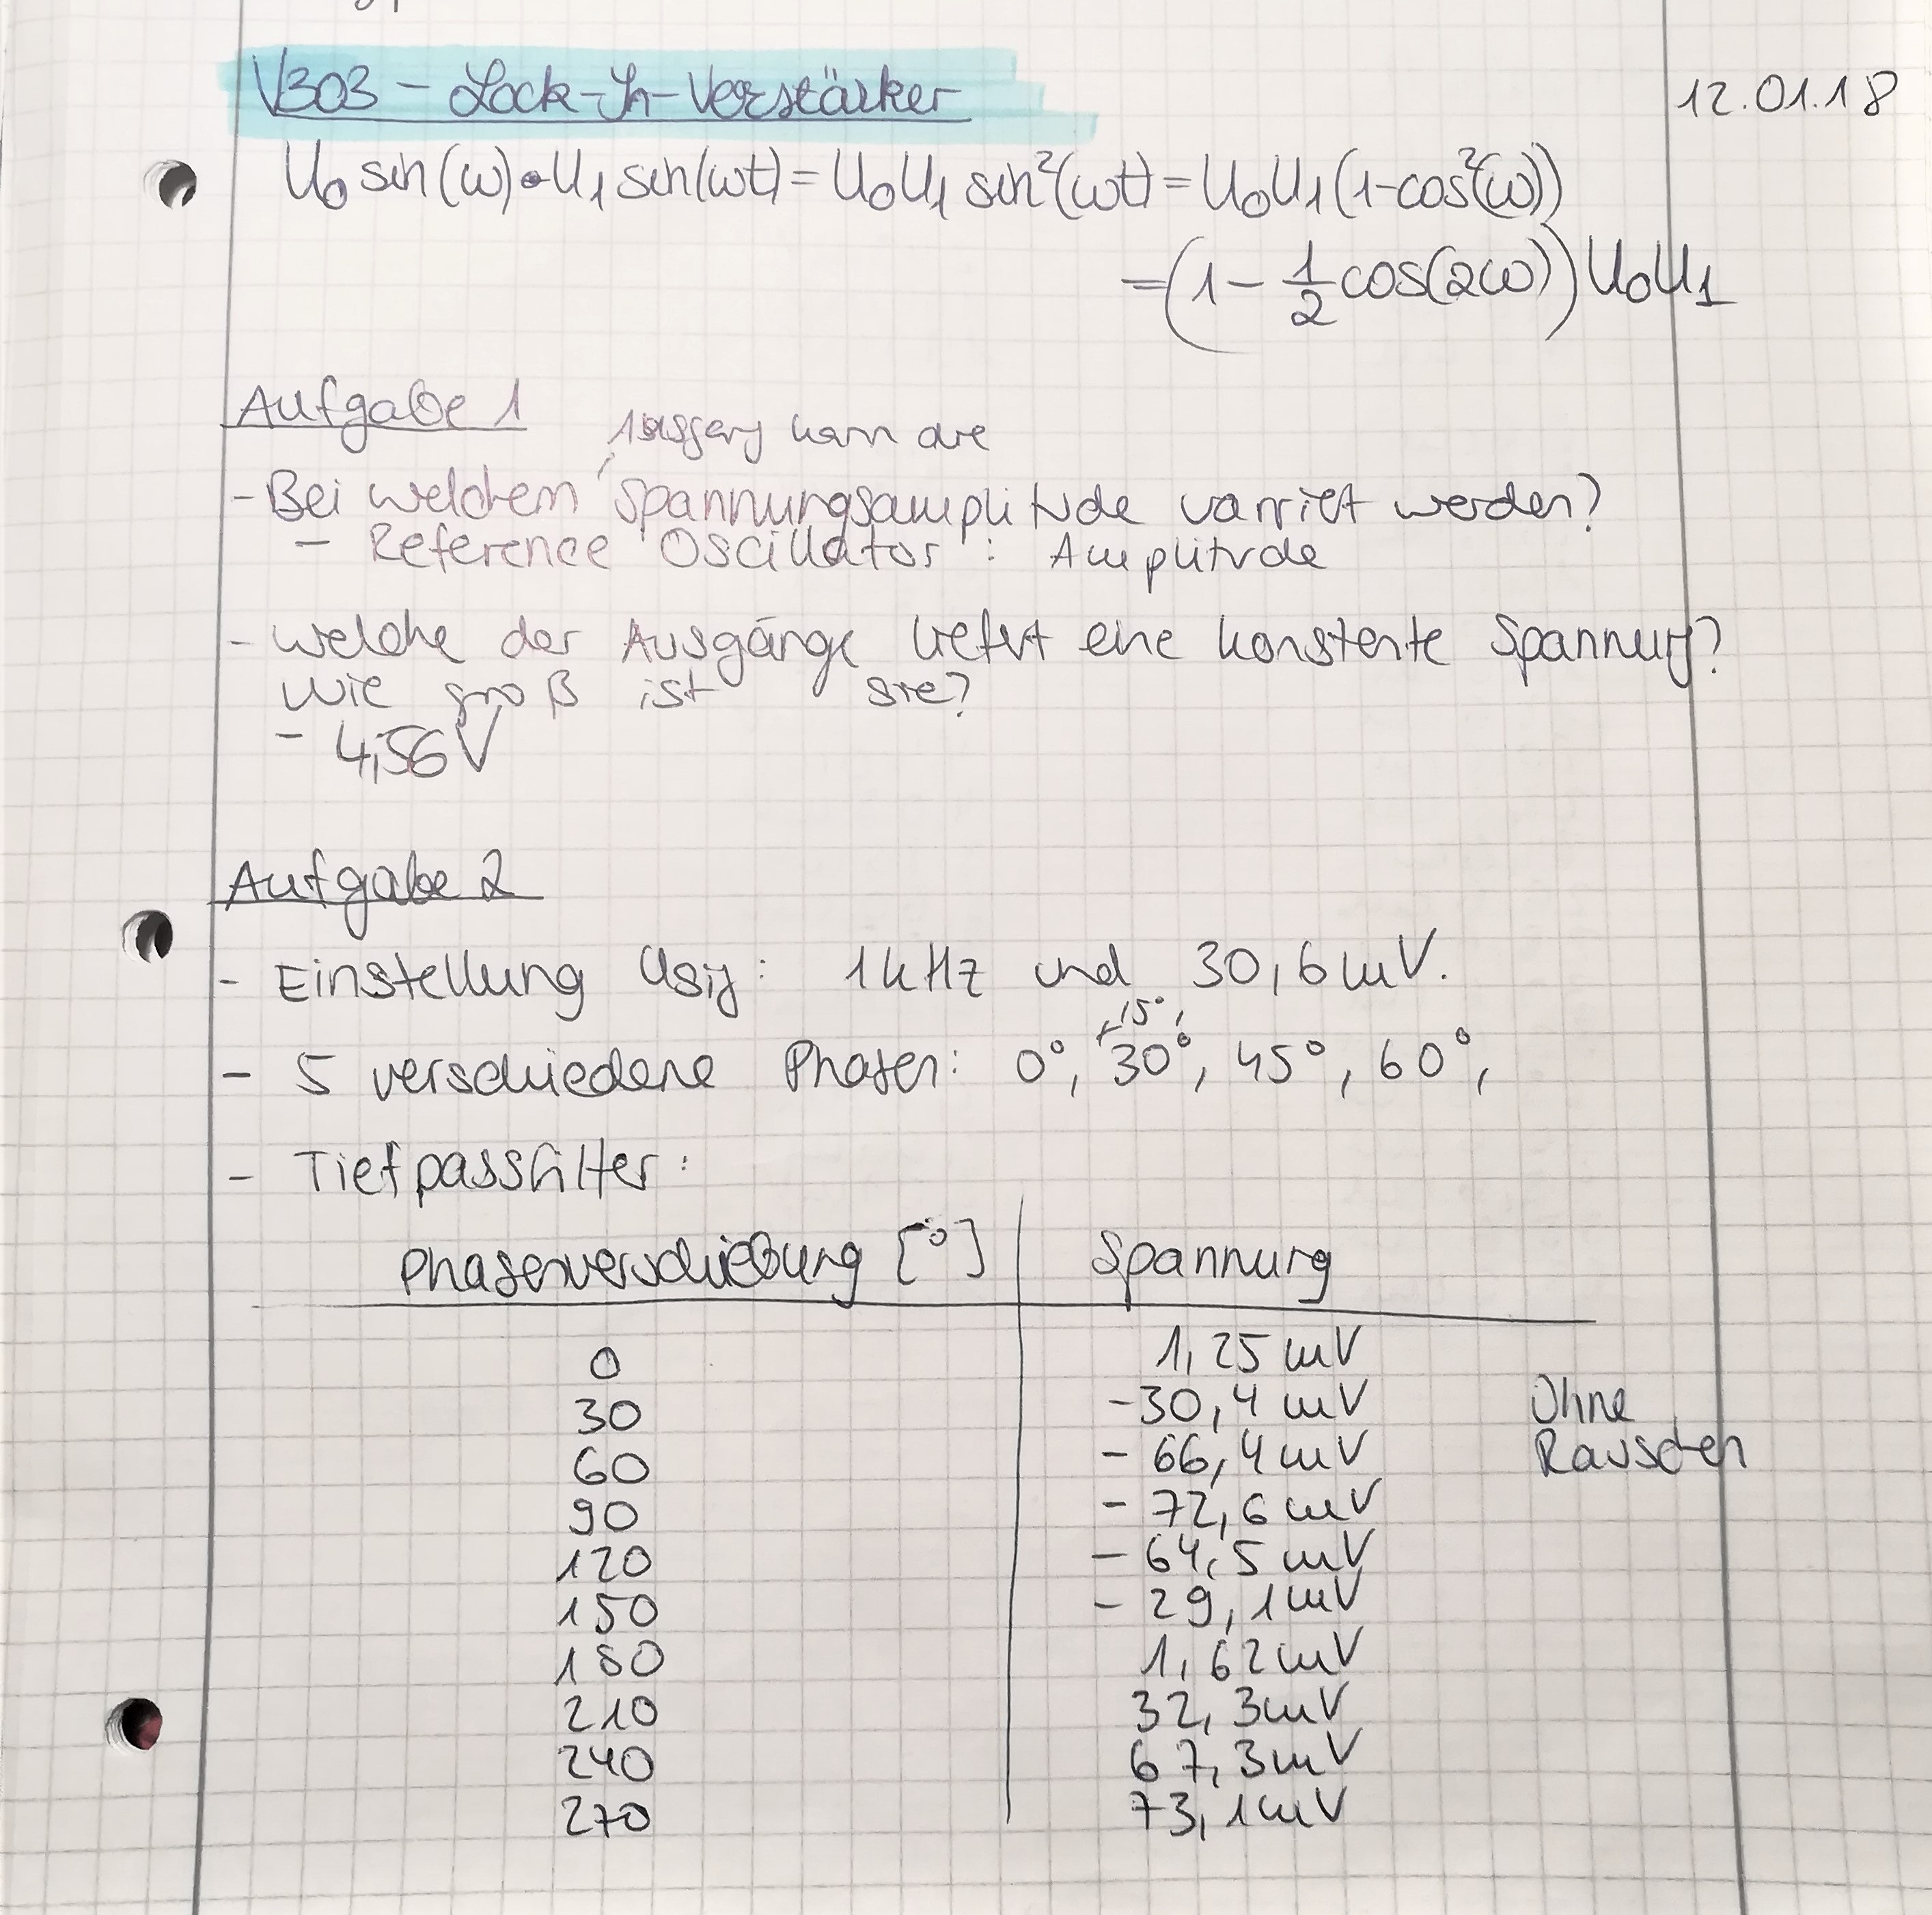 V303 - Lock-In-Verstärker
12.01.18
U₀ sin(ω)•U₁ sin(ωt) = U₀U₁ sin²(ωt) = U₀U₁(1-cos²(ω))
= (1 - 1/2 cos(2ω)) U₀U₁
Aufgabe 1
kann die
- Bei welchem Spannungsamplitude varriert werden?
- Reference Oscillator : Amplitude
- Welche der Ausgänge liefert eine konstante Spannung?
Wie groß ist sie?
- 4,56V
Aufgabe 2
- Einstellung Usig: 1kHz und 30,6mV.
15°,
- 5 verschiedene Phasen: 0°, 30°, 45°, 60°,
- Tiefpassfilter:
Phasenverschiebung [°] Spannung
0 1,25 mV
30 -30,4 mV Ohne
60 - 66,4 mV Rauschen
90 - 72,6 mV
120 - 64,5 mV
150 - 29,1mV
180 1,62mV
210 32,3mV
240 67,3mV
270 73,1mV